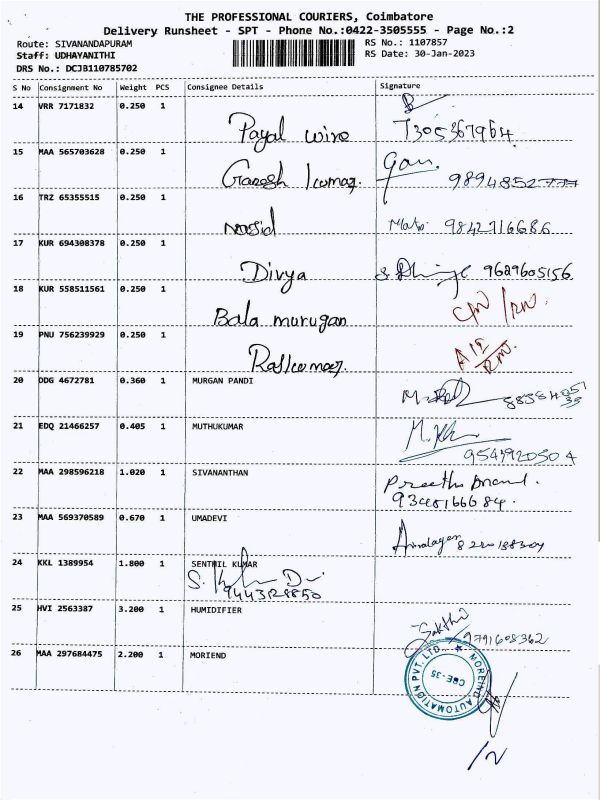 THE PROFESSIONAL COURIERS, Coimbatore
Delivery Runsheet - SPT - Phone No.:0422-3505555 - Page No.:2
Route: SIVANANDAPURAM
RS No.: 1107857
Staff: UDHAYANITHI
RS Date: 30-Jan-2023
DRS No.: DCJB110785702
S No Consignment No Weight PCS Consignee Details Signature
14 VRR 7171832 0.250 1
Payal wire 7305367964
15 MAA 565703628 0.250 1
Ganesh kumar. 9894852777
16 TRZ 65355515 0.250 1
9842716686
17 KUR 694308378 0.250 1
Divya 9629605156
18 KUR 558511561 0.250 1
Bala murugan
19 PNU 756239929 0.250 1
Rajkumar.
20 ODG 4672781 0.360 1 MURGAN PANDI
21 EDQ 21466257 0.405 1 MUTHUKUMAR
M.
22 MAA 298596218 1.020 1 SIVANANTHAN
Preetha Anand.
9348166684.
23 MAA 569370589 0.670 1 UMADEVI
24 KKL 1389954 1.800 1 SENTHIL KUMAR
S.
25 HVI 2563387 3.200 1 HUMIDIFIER
Sakthi
9791608362
26 MAA 297684475 2.200 1 MORIEND
MOREIND AUTOMATION PVT. LTD. ★
CBE-35